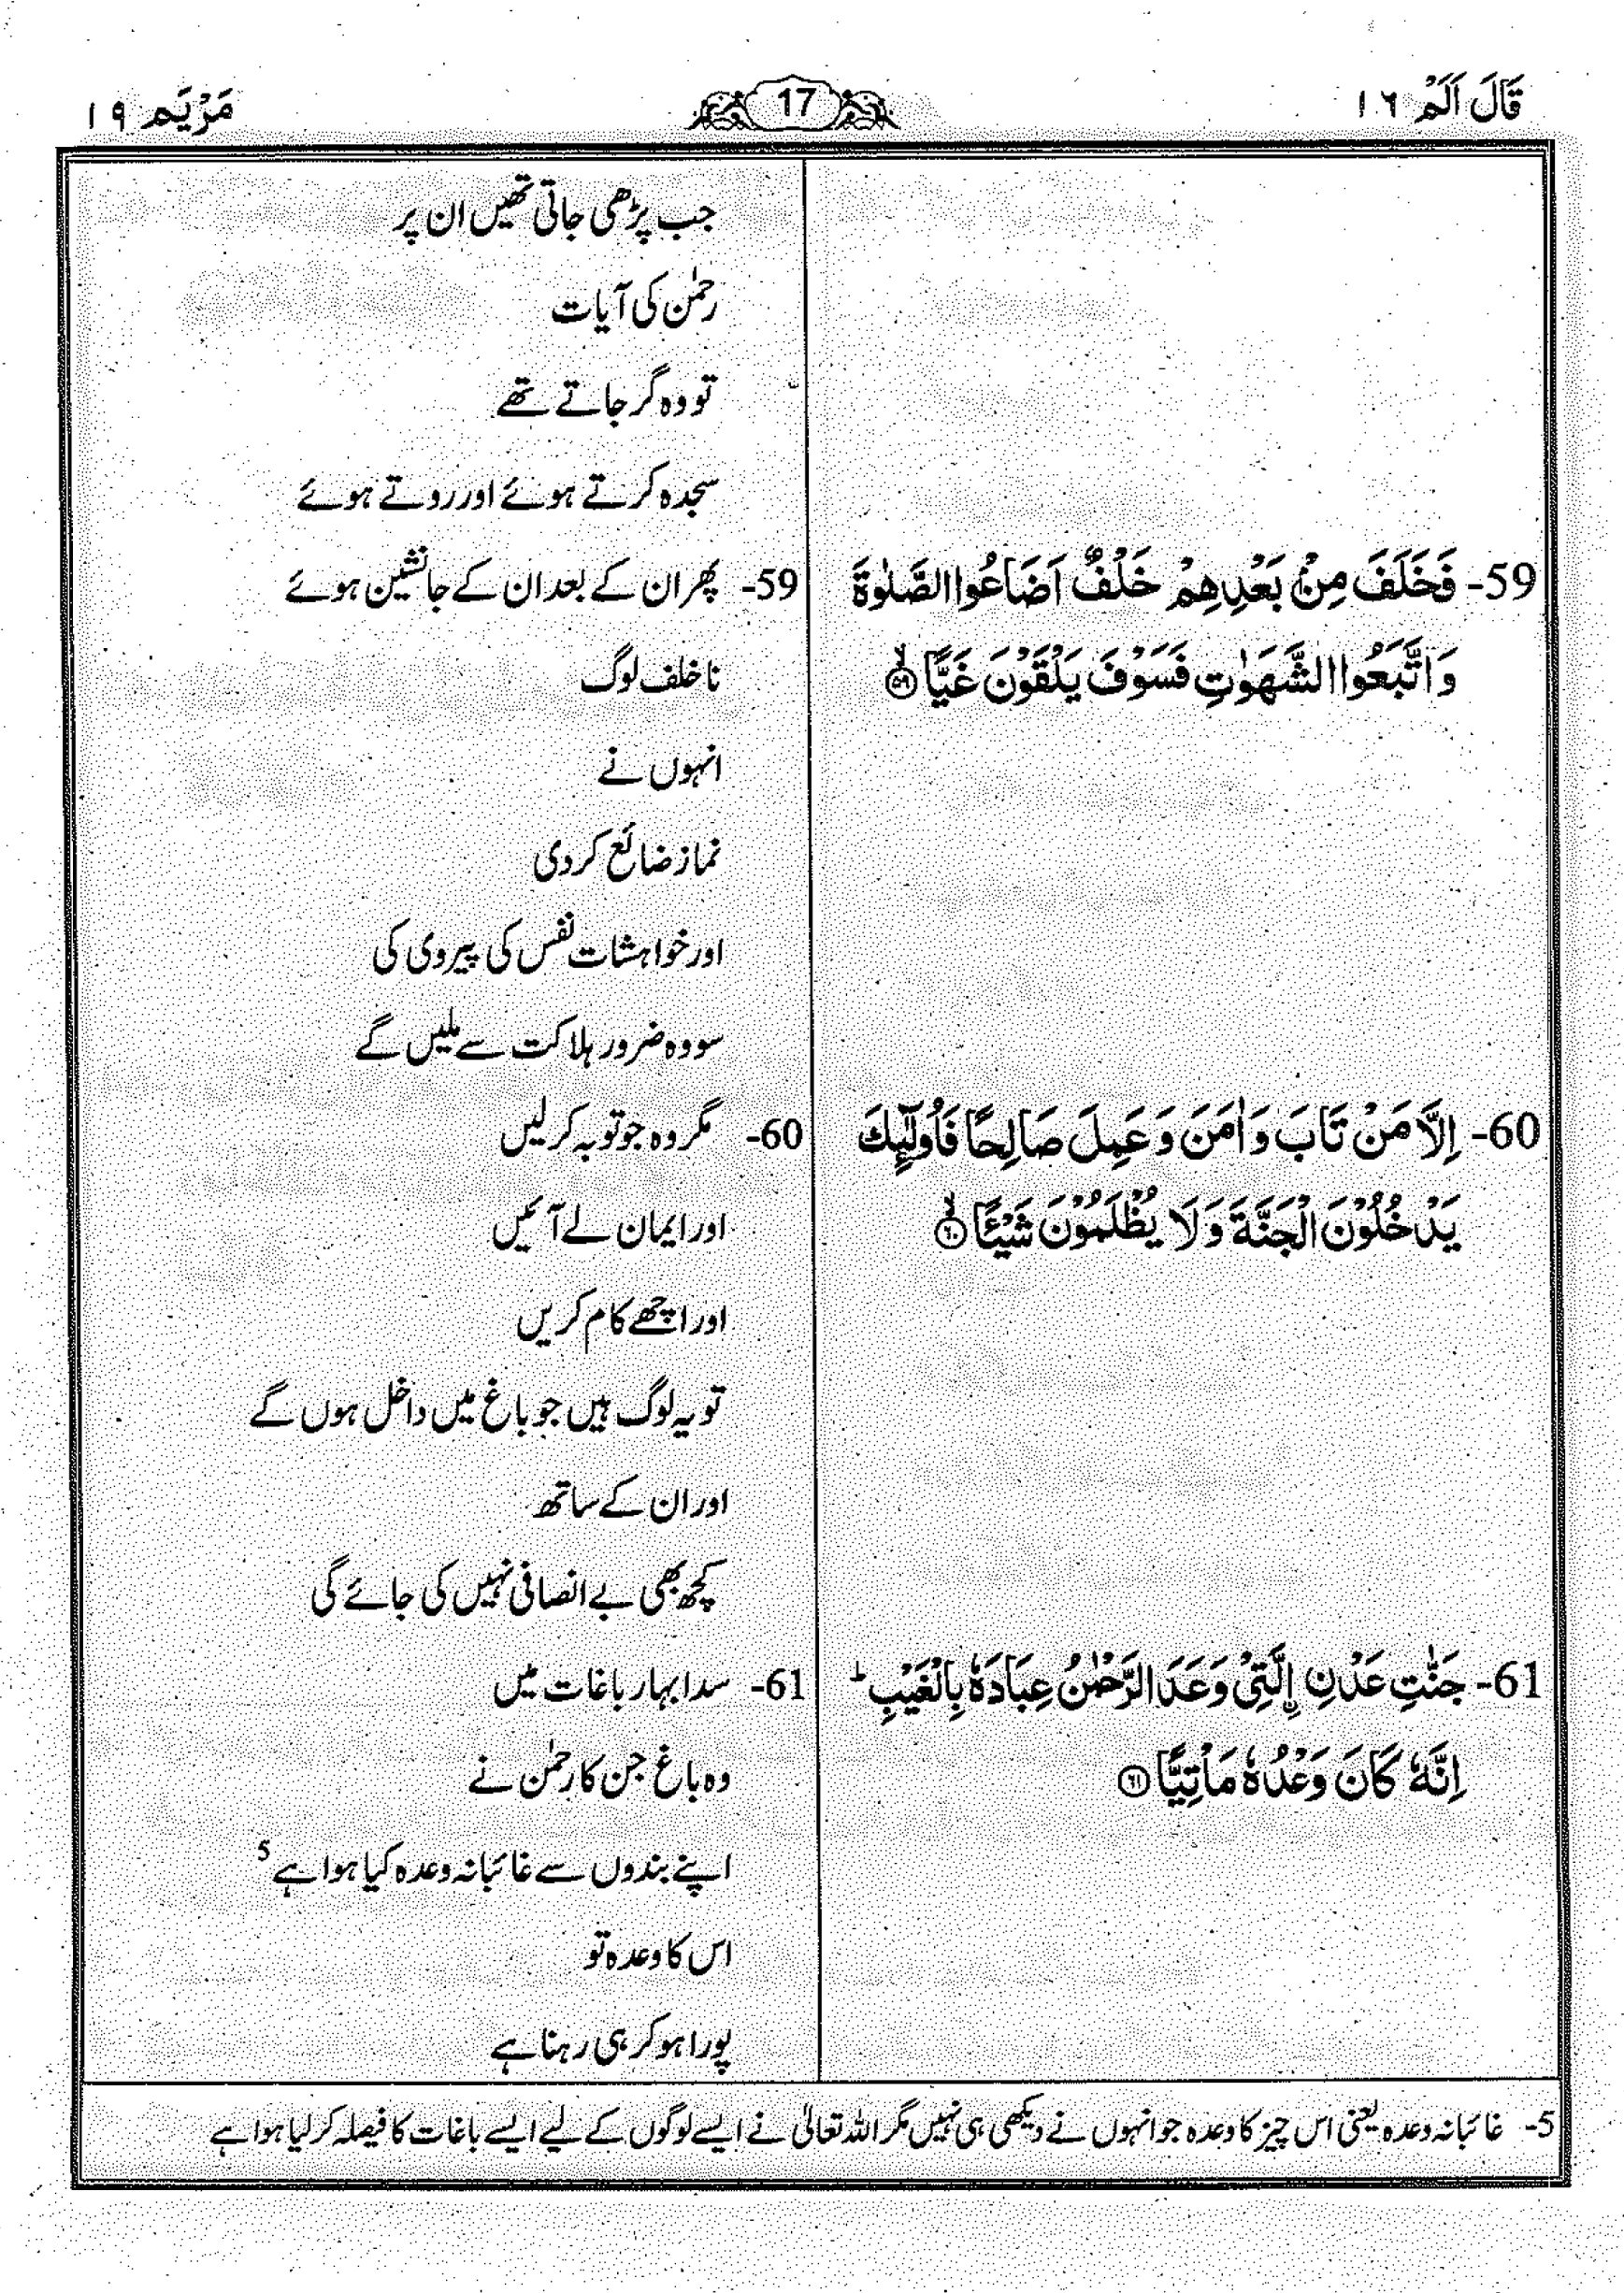 قَالَ اَلَمْ ١٦
17
مَرْيَم ١٩
جب پڑھی جاتی تھیں ان پر
رحمٰن کی آیات
تو وہ گر جاتے تھے
سجدہ کرتے ہوئے اور روتے ہوئے
59- فَخَلَفَ مِنْۢ بَعْدِهِمْ خَلْفٌ اَضَاعُوا الصَّلٰوةَ
وَاتَّبَعُوا الشَّهَوٰتِ فَسَوْفَ يَلْقَوْنَ غَيًّا ۙ﴿٥٩﴾
59- پھر ان کے بعد ان کے جانشین ہوئے
ناخلف لوگ
انہوں نے
نماز ضائع کر دی
اور خواہشات نفس کی پیروی کی
سو وہ ضرور ہلاکت سے ملیں گے
60- اِلَّا مَنْ تَابَ وَاٰمَنَ وَعَمِلَ صَالِحًا فَاُولٰٓئِكَ
يَدْخُلُوْنَ الْجَنَّةَ وَلَا يُظْلَمُوْنَ شَيْئًا ۙ﴿٦٠﴾
60- مگر وہ جو توبہ کر لیں
اور ایمان لے آئیں
اور اچھے کام کریں
تو یہ لوگ ہیں جو باغ میں داخل ہوں گے
اور ان کے ساتھ
کچھ بھی بے انصافی نہیں کی جائے گی
61- جَنّٰتِ عَدْنِ ࣙالَّتِيْ وَعَدَ الرَّحْمٰنُ عِبَادَهٗ بِالْغَيْبِ ؕ
اِنَّهٗ كَانَ وَعْدُهٗ مَاْتِيًّا ﴿٦١﴾
61- سدا بہار باغات میں
وہ باغ جن کا رحمٰن نے
اپنے بندوں سے غائبانہ وعدہ کیا ہوا ہے 5
اس کا وعدہ تو
پورا ہو کر ہی رہنا ہے
5- غائبانہ وعدہ یعنی اس چیز کا وعدہ جو انہوں نے دیکھی ہی نہیں مگر اللہ تعالیٰ نے ایسے لوگوں کے لیے ایسے باغات کا فیصلہ کر لیا ہوا ہے